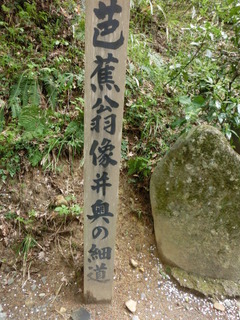 芭蕉翁像并奥の細道